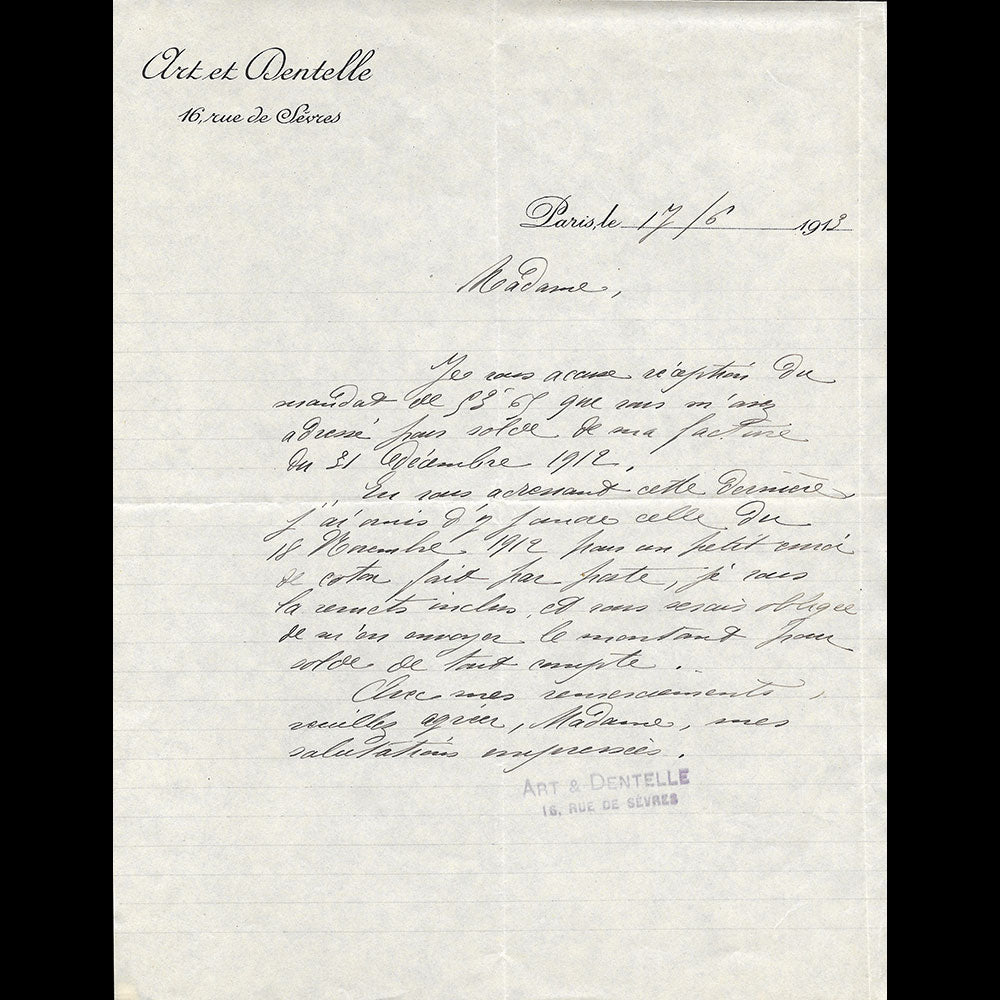 Art et Dentelle
16, rue de Sèvres
Paris, le 17/6 1913
Madame,
Je vous accuse réception du
mandat de que vous m'avez
adressé pour solde de ma facture
du 31 Décembre 1912.
En vous adressant cette dernière
j'ai omis d'y joindre celle du
18 Novembre 1912 pour un petit envoi
de coton fait par poste, je vous
la remets inclus, et vous serais obligée
de m'en envoyer le montant pour
solde de tout compte.
Avec mes remerciements,
veuillez agréer, Madame, mes
salutations empressées.
ART & DENTELLE
16, RUE DE SÈVRES